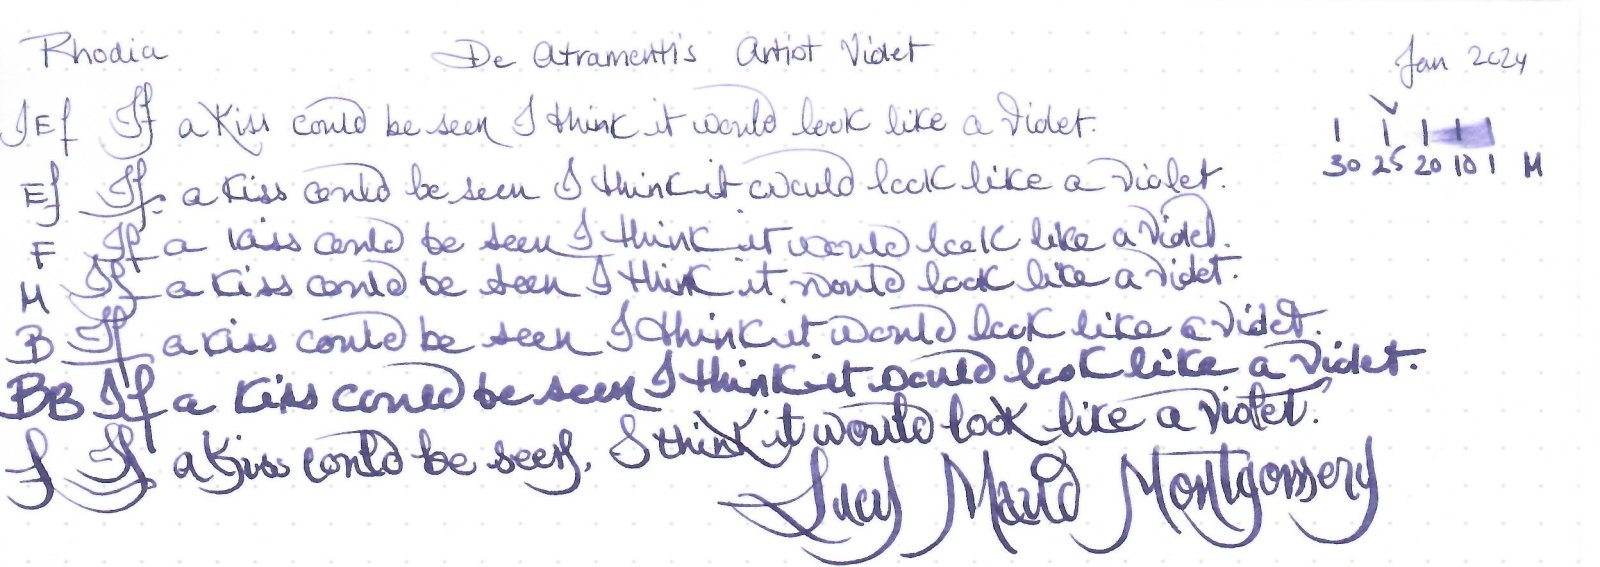 Rhodia De Atramentis Artist Violet Jan 2024
JEf If a Kiss could be seen I think it would look like a Violet.
Ef If a Kiss could be seen I think it would look like a Violet.
F If a kiss could be seen I think it would look like a Violet.
M If a kiss could be seen I think it would look like a Violet.
B If a kiss could be seen I think it would look like a Violet.
BB If a kiss could be seen I think it would look like a Violet.
J If a Kiss could be seen, I think it would look like a Violet.
30 25 20 10 1 M
Lucy Maud Montgomery